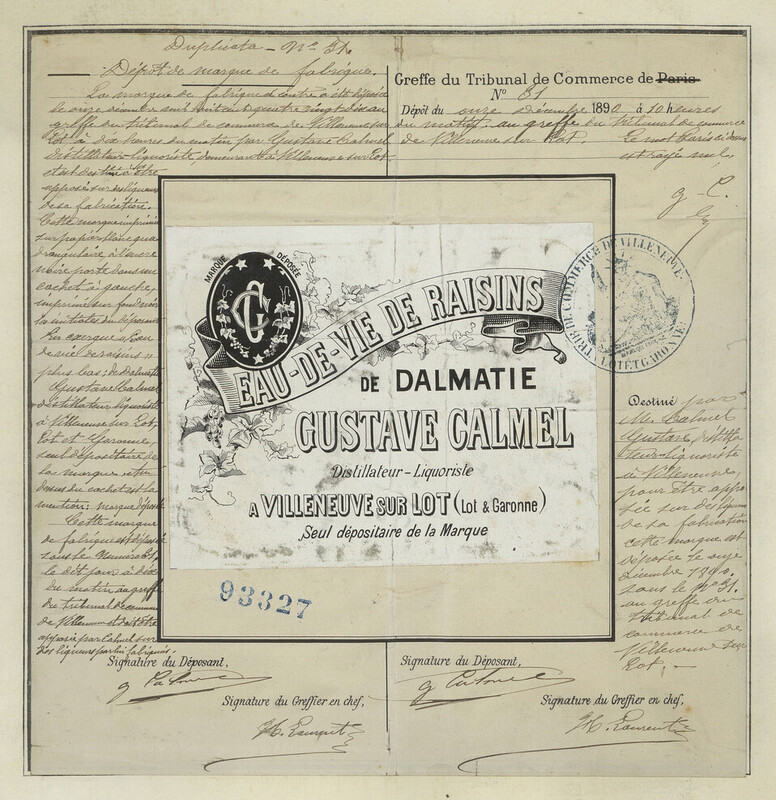 Duplicata - No 51.
Dépôt de marque de fabrique.
La marque de fabrique ci contre a été déposée
le onze décembre mil huit cent quatre vingt dix au
greffe du tribunal de commerce de Villeneuve sur
Lot à dix heures du matin par Gustave Calmel
distillateur-liquoriste, demeurant à Villeneuve sur Lot
et est destinée à être
apposée sur les liqueurs
de sa fabrication.
Cette marque imprimée
sur papier blanc qua
drangulaire à l'encre
noire porte dans un
cachet à gauche,
imprimé sur fond noir
les initiales du déposant
En exergue: Eau
de vie de raisins "
plus bas: de Dalmatie
Gustave Calmel
distillateur liquoriste
à Villeneuve sur Lot,
Lot et Garonne,
seul dépositaire de
la marque
dessus du cachet est la
mention: marque déposée
Cette marque
de fabrique est déposée
sous le numéro 51
le dit jour à dix
du matin au greffe
du tribunal de commerce
de Villeneuve et doit être
apposée par Calmel sur
les liqueurs par lui fabriqués.
Greffe du Tribunal de Commerce de Paris
No 51
Dépôt du onze décembre 1890 à 10 heures
du matin, au greffe du tribunal de commerce
de Villeneuve sur Lot. Le mot Paris ci dessus
est rayé nul.
g. C.
MARQUE DÉPOSÉE
GC
EAU-DE-VIE DE RAISINS
DE DALMATIE
GUSTAVE CALMEL
Distillateur-Liquoriste
A VILLENEUVE SUR LOT (Lot & Garonne)
Seul dépositaire de la Marque
TRIB. DE COMMERCE DE VILLENEUVE
LOT ET GARONNE
93327
Destiné par
M. Calmel
Gustave, distilla
teur-liquoriste
à Villeneuve,
pour être appo
sée sur des liqueurs
de sa fabrication
cette marque est
déposée le onze
décembre 1890.
sous le No 51.
au greffe du
tribunal de
commerce de
Villeneuve sur
Lot.
Signature du Déposant,
g Calmel
Signature du Greffier en chef,
H. Laurent
Signature du Déposant,
g Calmel
Signature du Greffier en chef,
H. Laurent